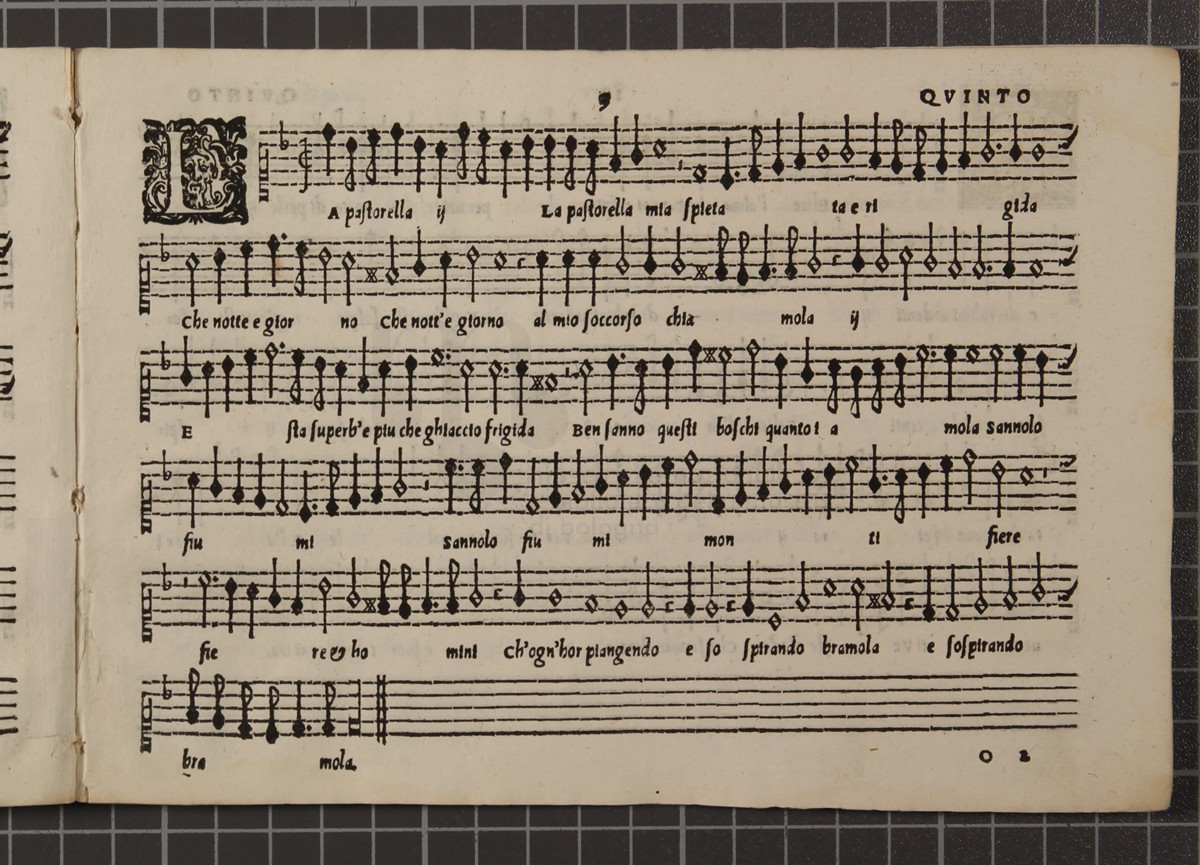 9 QVINTO
LA pastorella ij La pastorella mia spieta ta e ri gida
Che notte e gior no Che nott'e giorno al mio soccorso chia mola ij
E sta superb'e piu che ghiaccio frigida Ben sanno questi boschi quanto i a mola Sannolo
fiu mi Sannolo fiu mi mon ti fiere
fie re & ho mini Ch'ogn'hor piangendo e so spirando bramola e sospirando
bra mola.
O 2